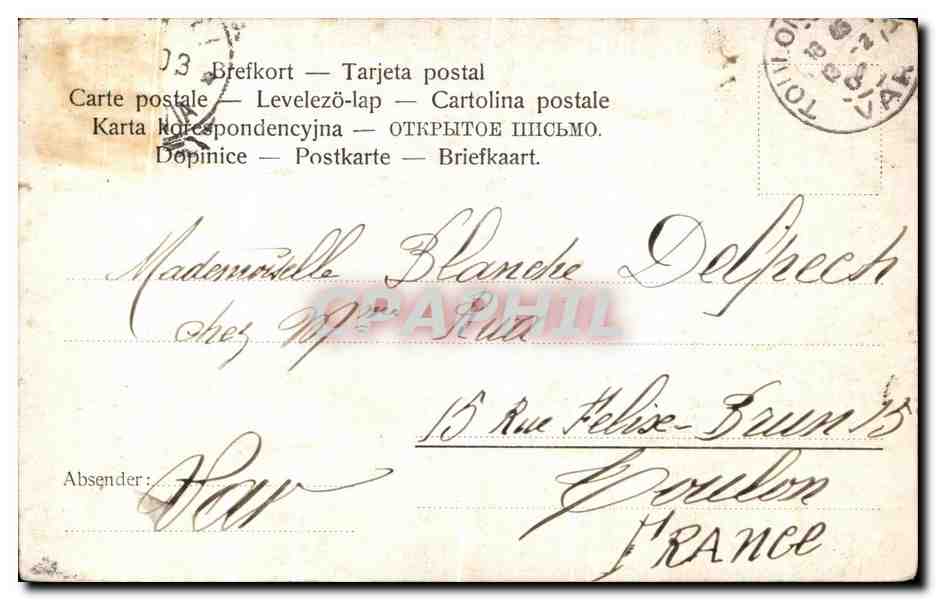 03
Brefkort — Tarjeta postal
Carte postale — Levelező-lap — Cartolina postale
Karta korespondencyjna — ОТКРЫТОЕ ПИСЬМО.
Dopinice — Postkarte — Briefkaart.
TOULON
VAR
Mademoiselle Blanche Delpech
chez Mme Rua
CPAPHIL
15 Rue Felix-Brun 15
Absender: Var
Toulon
FRANCE